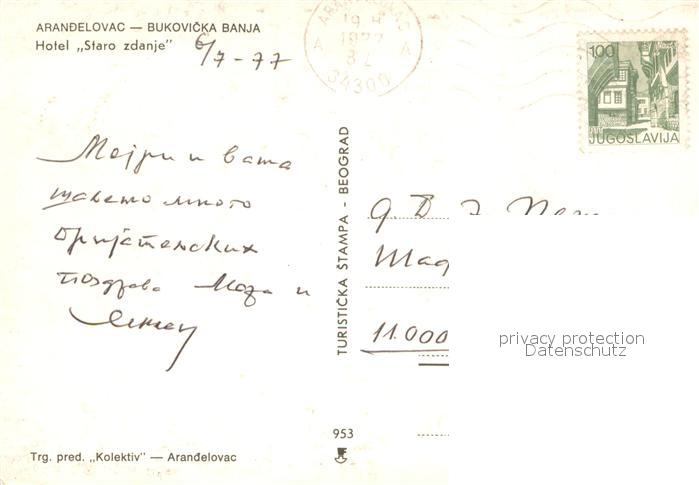 ARANĐELOVAC — BUKOVIČKA BANJA
Hotel „Staro zdanje"
6/7-77
ARANĐELOVAC
19 H
1977
A A
34300
100
JUGOSLAVIJA
и вама
шаљемо много
пријатељских
поздрава и
TURISTIČKA ŠTAMPA - BEOGRAD
11.000
privacy protection
Datenschutz
953
Trg. pred. „Kolektiv" — Aranđelovac